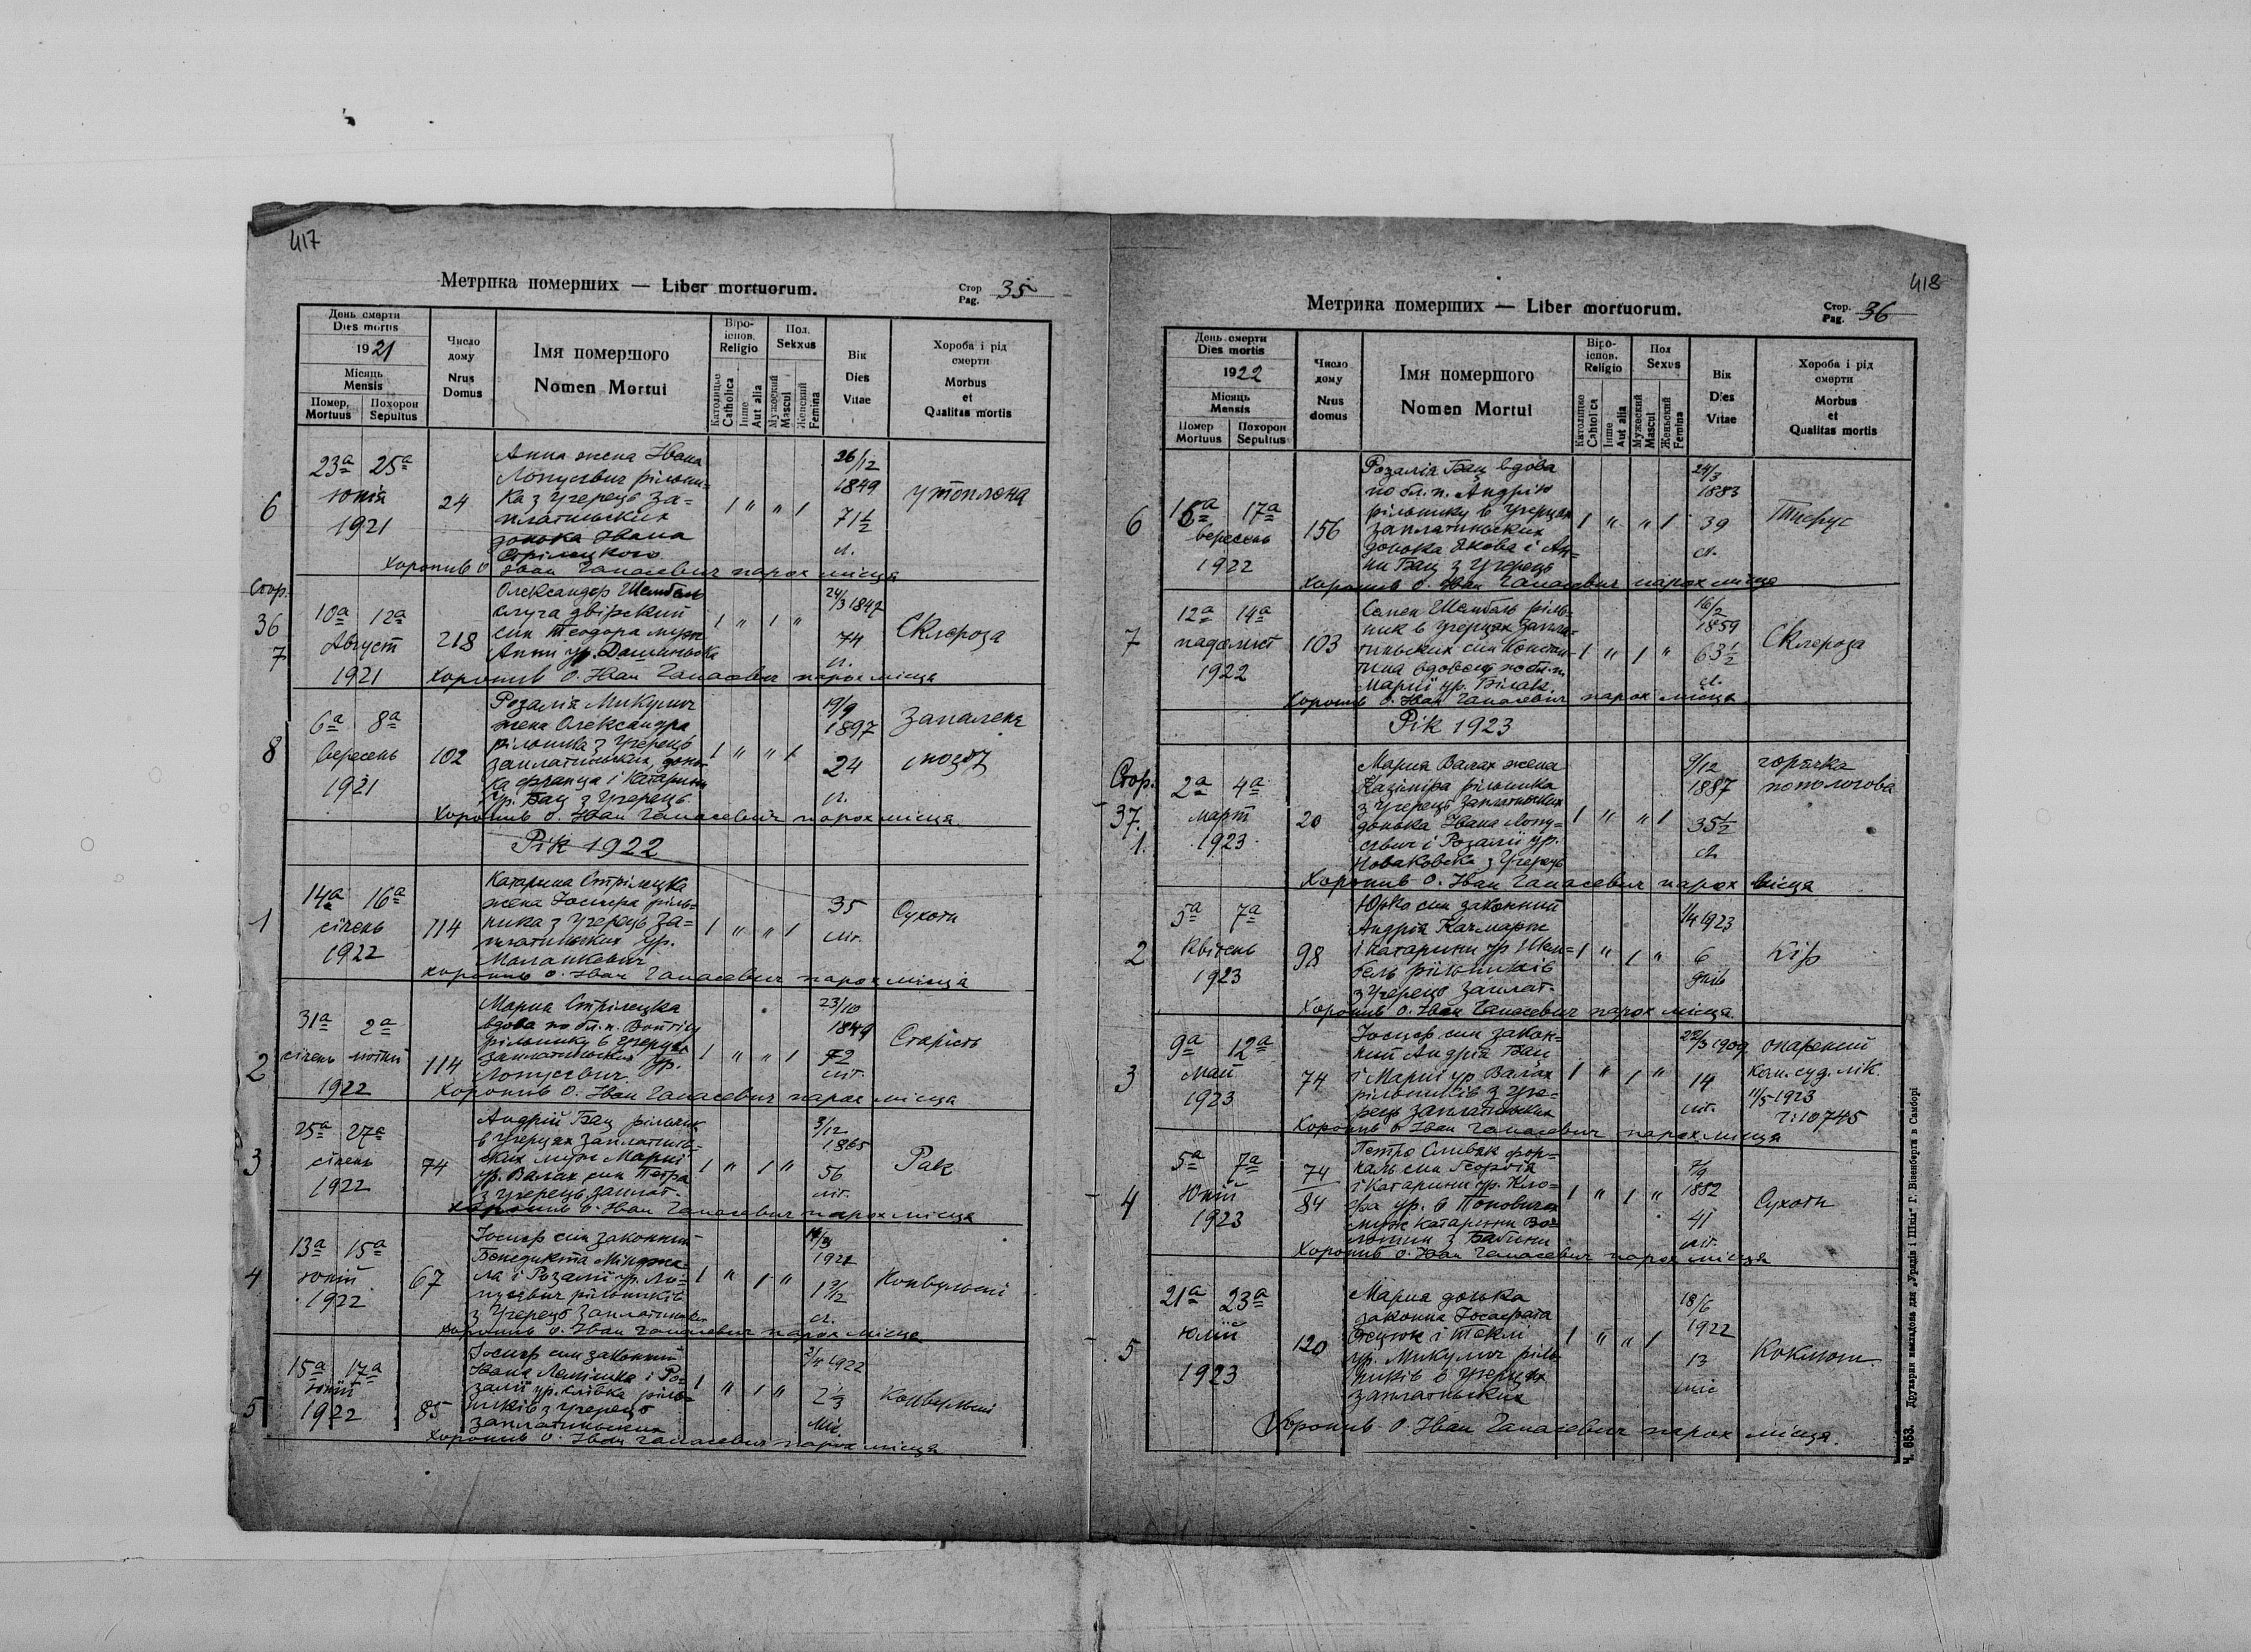 417
Метрика померших — Liber mortuorum.
Стор
Pag. 35
День смерти
Dies mortis
1921
Місяць
Mensis
Помер. Похорон
Mortuus Sepultus
Число
дому
Nrus
Domus
Імя помершого
Nomen Mortui
Віро-
іспов.
Religio
Католицке
Catholica
Інше
Aut alia
Пол.
Sekxus
Мужеский
Mascul
Женский
Femina
Вік
Dies
Vitae
Хороба і рід
смерти
Morbus
et
Qualitas mortis
6
23а 25а
юнія
1921
24
Анна жена Івана
Лопусевич рільни-
ка з Угерець за-
платинських
донька Івана
Стрілецкого
1 " " 1
26/12
1849
71½
л.
утоплена
Хоронив о. Іван Чапасевич парох місця
Стор.
36
7
10а 12а
Август
1921
218
Олександер Шембель
слуга двірский
син Теодора муж
Анни ур.
1 " 1 "
24/3 1847
74
л.
Склероза
Хоронив о. Іван Чапасевич парох місця
8
6а 8а
вересень
1921
102
Розалія Микулич
жена Олександра
рільника з Угерець
заплатинських донь-
ка Франца і Катарини
ур. Бац з Угерець
1 " " 1
19/9
1897
24
л.
Запаленя
Хоронив о. Іван Чапасевич парох місця
Рік 1922
1
14а 16а
січень
1922
114
Катарина Стрілецка
жена Йосифа рільн-
ника з Угерець За-
платинських ур.
Малашкевич
1 " " 1
35
літ.
Сухоти
Хоронив о. Іван Чапасевич парох місця
2
31а 2а
січень лютий
1922
114
Мария Стрілецка
вдова по бл. п. Войтіху
рільнику в Угерцах
заплатинських ур.
Лопусевич
1 " " 1
23/10
1849
72
літ.
Старість
Хоронив о. Іван Чапасевич парох місця
3
25а 27а
січень
1922
74
Андрій Бац рільник
в Угерцах заплатинь-
ских муж Мариї
ур. Валах син Петра
з Угерець заплат.
1 " 1 "
3/12
1865
56
літ.
Рак
Хоронив о. Іван Чапасевич парох місця
4
13а 15а
юній
1922
67
Йосиф син законний
Бенедикта
ла і Розалії ур. Ло-
пусевич рільників
з Угерець Заплатинських
1 " 1 "
1921
1 л.
Конвульсиї
Хоронив о. Іван Чапасевич парох місця
5
15а 17а
юній
1922
85
Йосиф син законний
Івана і Ро-
залії ур. рільн-
ників з Угерець
заплатинських
1 " 1 "
2/4 1922
2⅓
міс
Конвульсиї
Хоронив о. Іван Чапасевич парох місця
418
Метрика померших — Liber mortuorum.
Стор.
Pag. 36
День смерти
Dies mortis
1922
Місяць
Mensis
Помер Похорон
Mortuus Sepultus
Число
дому
Nrus
domus
Імя помершого
Nomen Mortui
Віро-
іспов.
Religio
Католицке
Cahtolica
Інше
Aut alia
Пол
Sexus
Мужеский
Mascul
Женьский
Femina
Вік
Dies
Vitae
Хороба і рід
смерти
Morbus
et
Qualitas mortis
6
16а 17а
вересень
1922
156
Розалія Бац вдова
по бл. п. Андрію
рільнику в Угерцах
заплатинських
донька Якова і Ан-
ни Бац з Угерець
1 " " 1
24/3
1883
39
л.
Тифус
Хоронив о. Іван Чапасевич парох місця
7
12а 14а
падолист
1922
103
Семен Шембель ріль-
ник в Угерцах Запла-
тинських син Констан-
тина вдовець по бл. п.
Мариї ур. Білак.
1 " 1 "
16/2
1859
63½
л.
Склероза
Хоронив о. Іван Чапасевич парох місця
Рік 1923
Стор.
37.
1.
2а 4а
март
1923
20
Мария Валах жена
Казіміра рільника
з Угерець Заплатинських
донька Івана Лопу-
севич і Розалії ур.
Новаковска з Угерець
1 " " 1
9/12
1887
35½
л.
горячка
попологова
Хоронив о. Іван Чапасевич парох місця
2
5а 7а
Квітень
1923
98
Юрко син законний
Андрія Качмарик
і Катарини ур Шем-
бель рільників
з Угерець Заплат.
1 " 1 "
1/4 1923
6
днів
Кір
Хоронив о. Іван Чапасевич парох місця.
3
9а 12а
Май
1923
74
Йосиф син закон-
ний Андрія Бац
і Мариї ур Валах
рільників з Уге-
рець заплатинських
1 " 1 "
22/3 1909
14
літ.
опарений
Ком. суд. лік.
11/5 1923
Ч: 10745
Хоронив о. Іван Чапасевич парох місця
4
5а 7а
Юній
1923
74
84
Петро Сливяк фор-
наль син Георгія
і Катарини ур.
ур. в Поповичах
муж Катарини
1 " 1 "
7/9
1882
41
літ.
Сухоти
Хоронив о. Іван Чапасевич парох місця
5
21а 23а
юлій
1923
120
Мария донька
законна Йосафата
і Теклі
ур. Микулич ріль-
ників в Угерцях
заплатинських
1 " " 1
18/6
1922
13
міс
Коклюш
Хоронив о. Іван Чапасевич парох місця.
Ч. 653. Друкарня накладова для „Урядів і Шкіл" Г. Візенберґа в Самборі